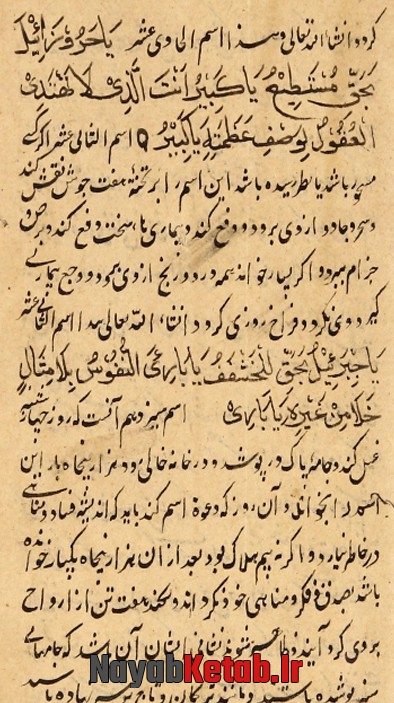 کردد انشاء الله تعالی و هذا اسم الحادی عشر یا حروزائیل
بحق مستطیع یا کبیر انت الذی لا تهتدی
العقول لوصف عظمته یا کبیر اسم الثانی عشر اگر کسی
باشد یا نظر رسیده باشد این اسم را بر تخته هفت جوش نقش کند
و سحر و جادو از وی برود و دفع کند و بیماری ها سخت دفع کند و برص و
جزام ببرد و اگر بسیار خواند همه درد و رنج از وی برود و وجع بیماری
کیرد وی نگردد و فراخ روزی گردد انشاء الله تعالی هذا اسم الثانی عشر
یا جبرئیل بحق یا باری النفوس بلا مثال
خلا من غیره یا باری اسم سیزدهم آنست که روز چهارشنبه
غسل کند و جامه پاک در پوشد و در خانه خالی رود هزار پنجاه بار این
اسم را بخواند و آن روز که دعوة اسم کند باید که اندیشه فساد و مناهی
در خاطر نیارد و اگر نه بیم هلاک بود بعد از آن هزار پنجاه یکبار خوانده
باشد بصدق و فکر و مناهی خود نگرداند و نکند هفت تن از ارواح
بروی گرد آیند و شوند نشانی ایشان آن باشد که جامهای
پوشیده باشند و مانند ترکان
NayabKetab.Ir